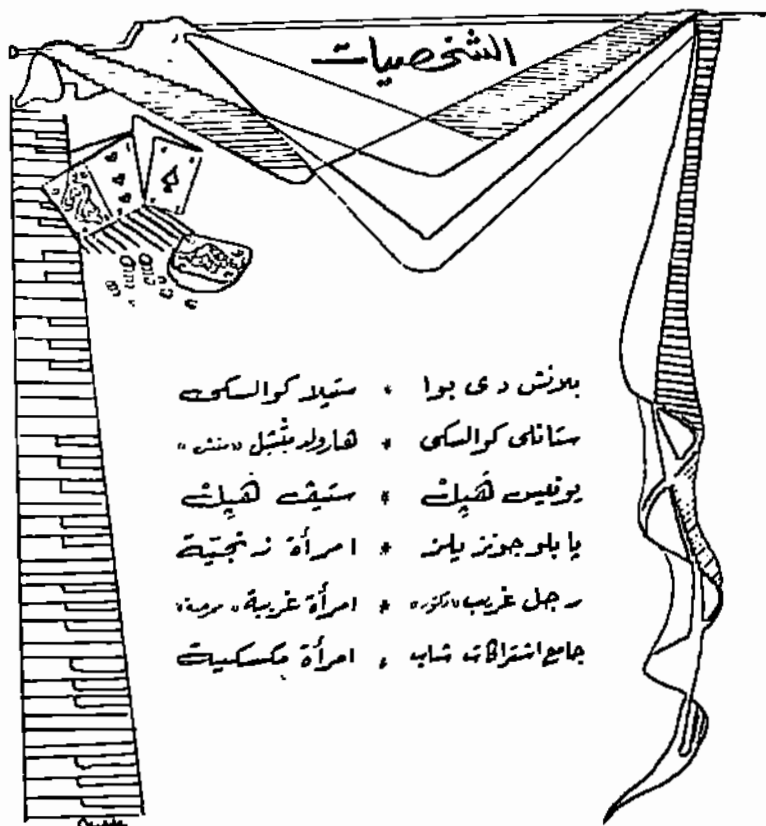 الشخصيات
بلانش دى بوا * ستيلا كوالسكى
ستانلى كوالسكى * هارولد متشل «متش»
يونيس هَبِل * ستيف هَبِل
پابلو جونزيلز * امرأة زنجيّة
رجل غريب «دكتور» * امرأة غريبة «ممرضة»
جامع اشتراكات شاب * امرأة مكسكية